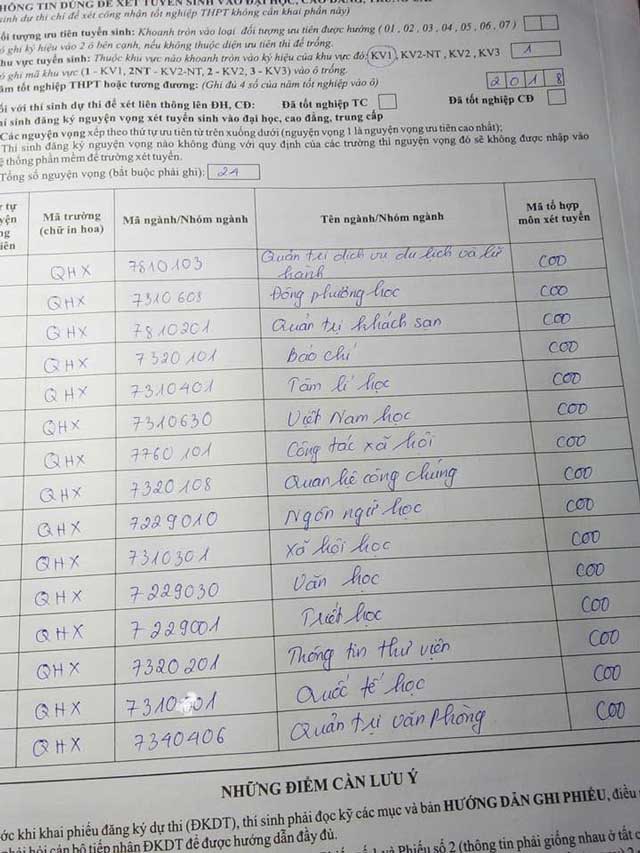 HÔNG TIN DÙNG ĐỂ XÉT TUYỂN SINH VÀO ĐẠI HỌC, CAO ĐẲNG, TRUNG CẤP
sinh dự thi chỉ để xét công nhận tốt nghiệp THPT không cần khai phần này)
ối tượng ưu tiên tuyển sinh: Khoanh tròn vào loại đối tượng ưu tiên được hưởng (01 , 02 , 03 , 04 , 05 , 06 , 07 )
ó ghi ký hiệu vào 2 ô bên cạnh, nếu không thuộc diện ưu tiên thì để trống.
hu vực tuyển sinh: Thuộc khu vực nào khoanh tròn vào ký hiệu của khu vực đó; KV1, KV2-NT , KV2 , KV3 1
ó ghi mã khu vực (1 - KV1, 2NT - KV2-NT, 2 - KV2, 3 - KV3) vào ô trống.
ăm tốt nghiệp THPT hoặc tương đương: (Ghi đủ 4 số của năm tốt nghiệp vào ô) 2 0 1 8
ối với thí sinh dự thi để xét liên thông lên ĐH, CĐ: Đã tốt nghiệp TC Đã tốt nghiệp CĐ
hí sinh đăng ký nguyện vọng xét tuyển sinh vào đại học, cao đẳng, trung cấp
Các nguyện vọng xếp theo thứ tự ưu tiên từ trên xuống dưới (nguyện vọng 1 là nguyện vọng ưu tiên cao nhất);
Thí sinh đăng ký nguyện vọng nào không đúng với quy định của các trường thì nguyện vọng đó sẽ không được nhập vào
ệ thống phần mềm để trường xét tuyển.
Tổng số nguyện vọng (bắt buộc phải ghi): 21
r tự
yện
ng
iên
Mã trường
(chữ in hoa)
Mã ngành/Nhóm ngành
Tên ngành/Nhóm ngành
Mã tổ hợp
môn xét tuyển
QHX 7810103 Quản trị dịch vụ du lịch và lữ hành C00
QHX 7310608 Đông phương học C00
QHX 7810201 Quản trị khách sạn C00
QHX 7320101 Báo chí C00
QHX 7310401 Tâm lí học C00
QHX 7310630 Việt Nam học C00
QHX 7760101 Công tác xã hội C00
QHX 7320108 Quan hệ công chúng C00
QHX 7229010 Ngôn ngữ học C00
QHX 7310301 Xã hội học C00
QHX 7229030 Văn học C00
QHX 7229001 Triết học C00
QHX 7320201 Thông tin thư viện C00
QHX Quốc tế học C00
QHX 7340406 Quản trị văn phòng C00
NHỮNG ĐIỂM CẦN LƯU Ý
ớc khi khai phiếu đăng ký dự thi (ĐKDT), thí sinh phải đọc kỹ các mục và bản HƯỚNG DẪN GHI PHIẾU, điều
phải hỏi cán bộ tiếp nhận ĐKDT để được hướng dẫn đầy đủ.
và Phiếu số 2 (thông tin phải giống nhau ở tất c